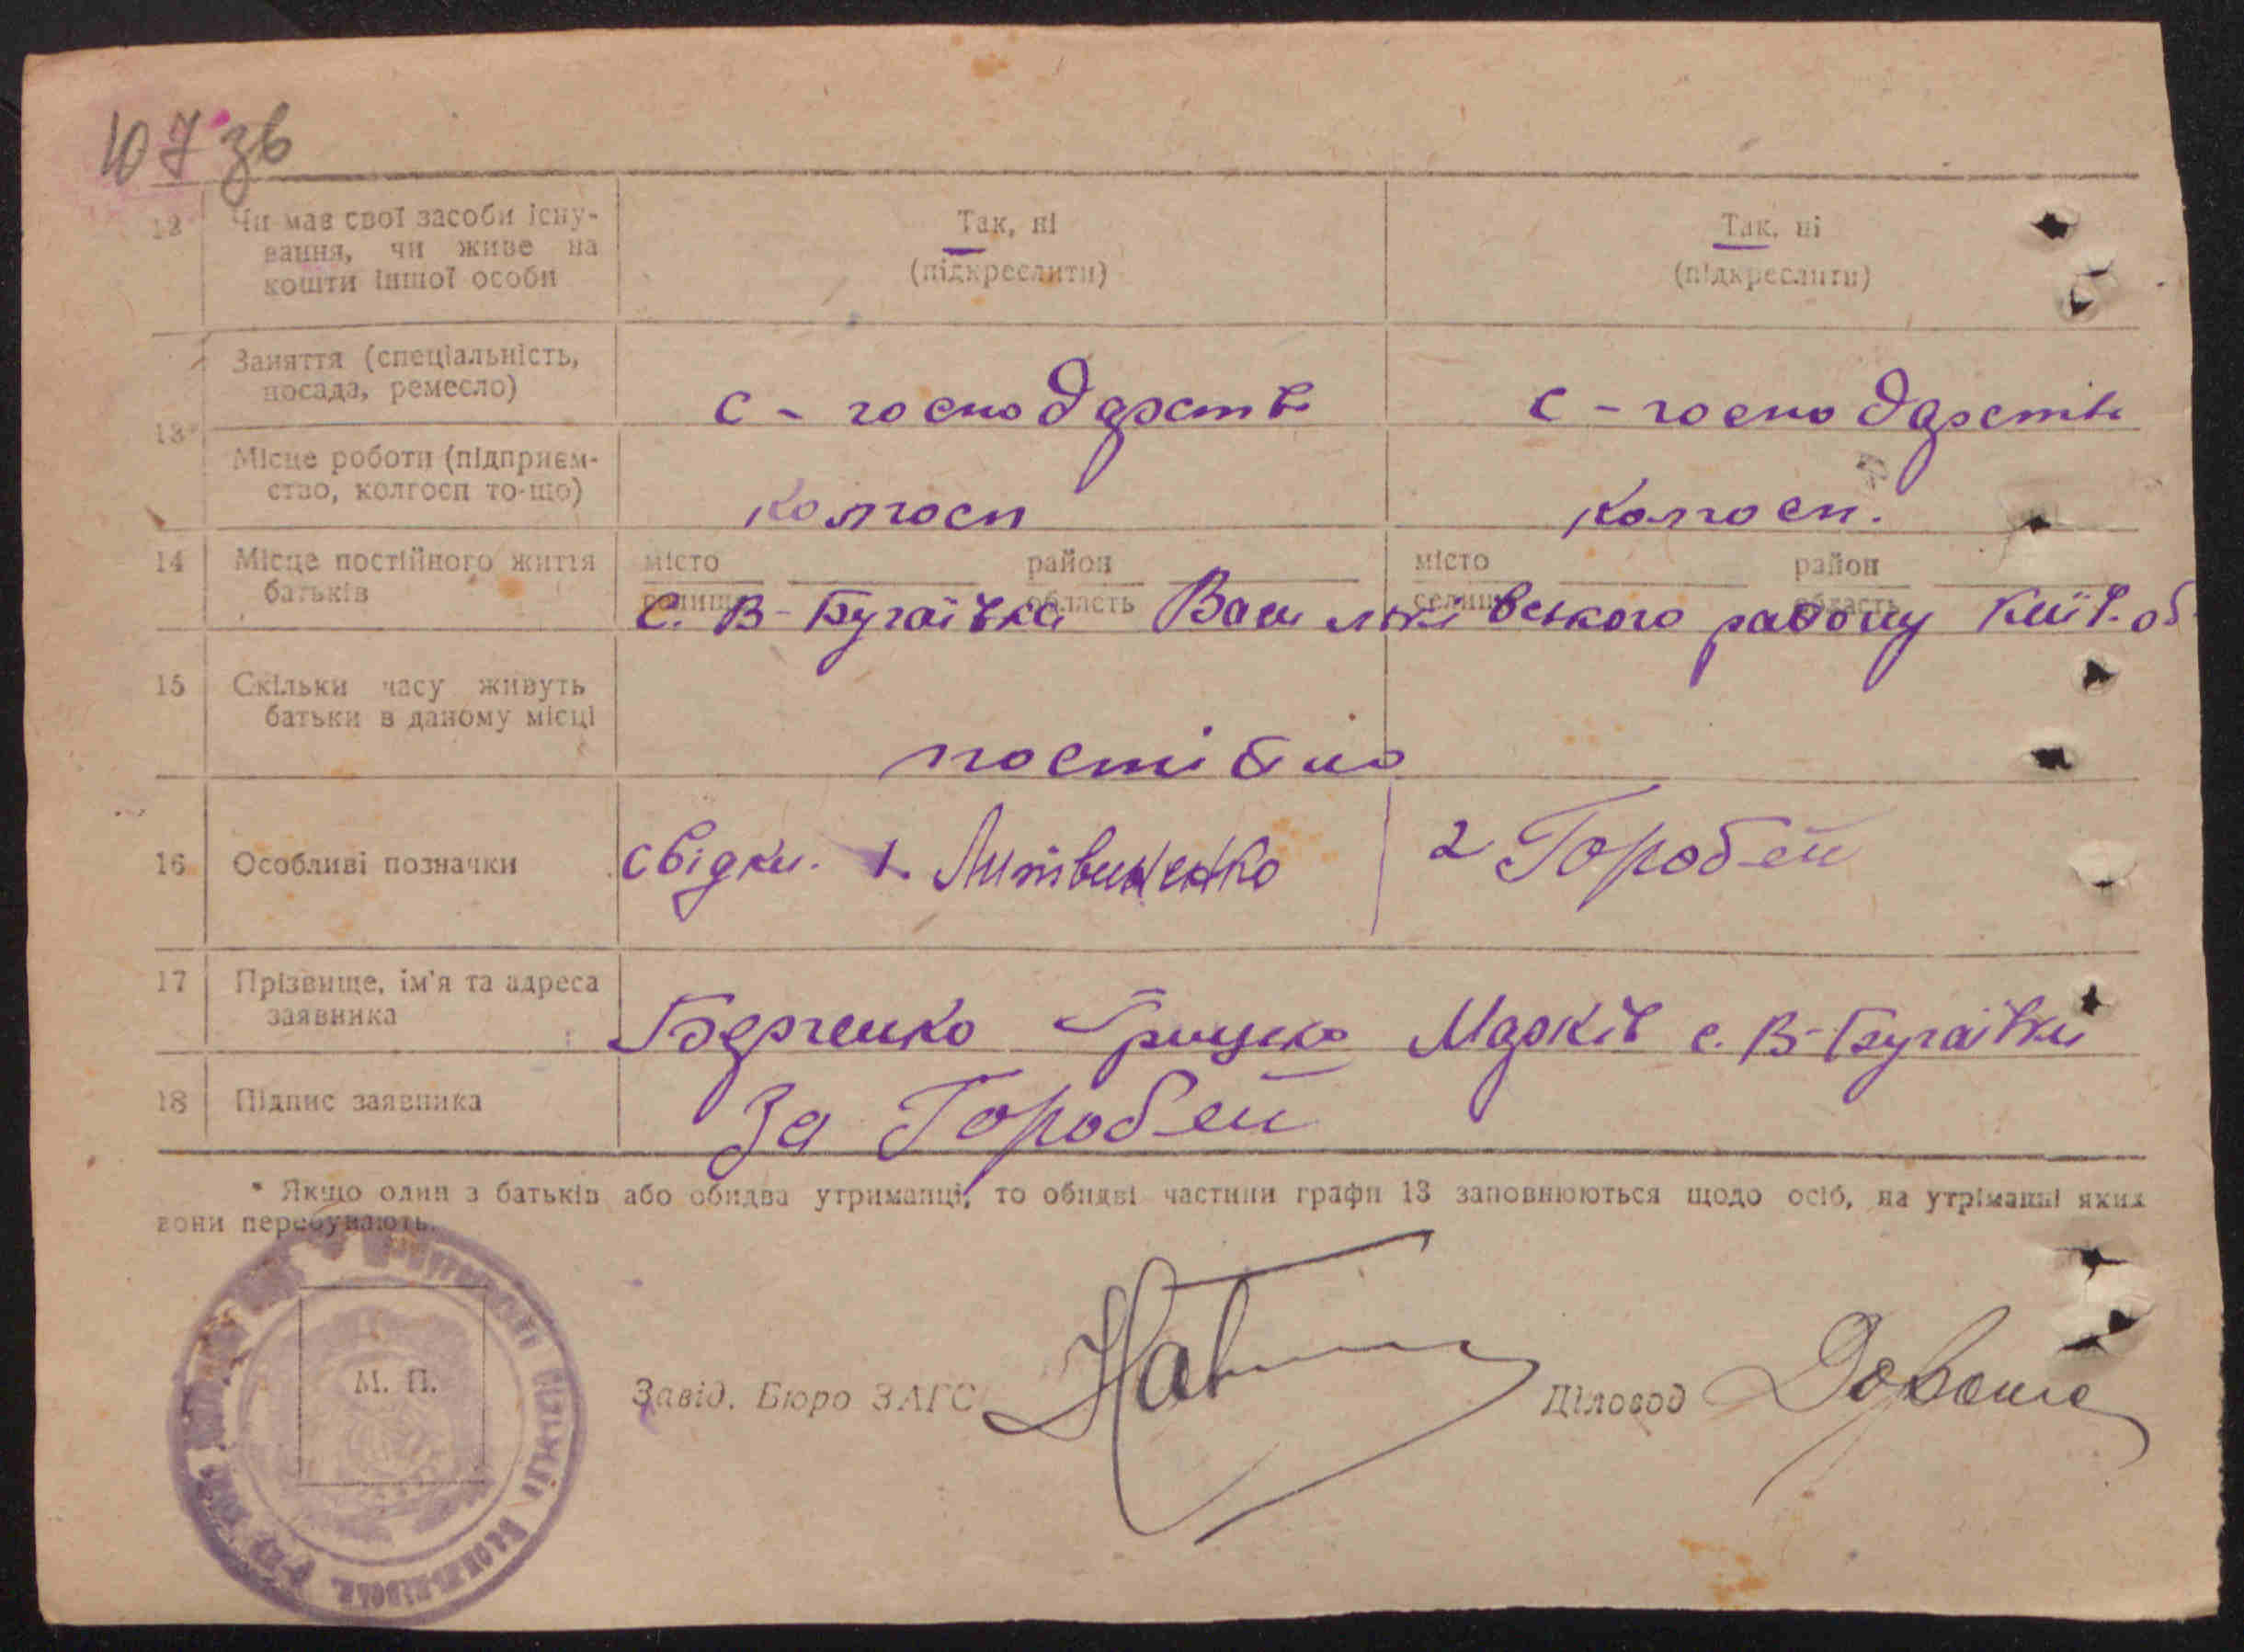 107 зв
12 Чи має свої засоби існу- Так, ні Так, ні
вання, чи живе на
кошти іншої особи (підкреслити) (підкреслити)
Заняття (спеціальність,
посада, ремесло) с - господарств с - господарств
13*
Місце роботи (підприєм-
ство, колгосп то-що) колгосп колгосп.
14 Місце постійного життя місто район місто район
батьків селище область селище область
с. В-Бугаївка Васильківського району Київ. об
15 Скільки часу живуть
батьки в даному місці
постійно
16 Особливі позначки свідки. 1. Литвиненко 2 Горобей
17 Прізвище, ім'я та адреса
заявника Грицько Марків с. В-Бугаївки
18 Підпис заявника За Горобей
* Якщо один з батьків або обидва утриманці, то обидві частини графи 13 заповнюються щодо осіб, на утріманні яких
вони перебувають.
М. П.
Завід. Бюро ЗАГС Діловод